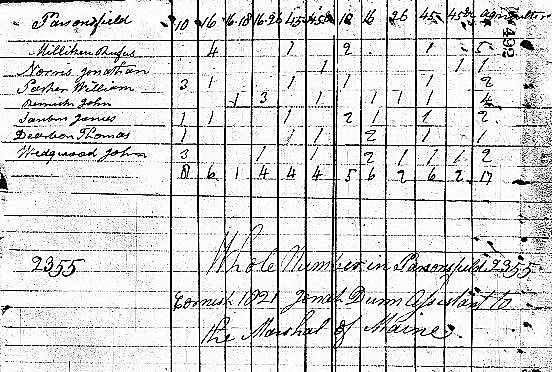 Parsonsfield 10 16 16-18 16-26 45 45& 10 16 26 45 45& Agriculture
Milliken Rufus 4 1 2 1 5
Norris Jonathan 1 1 1
Parker William 3 1 1 1 1 2
John 1 3 1 1 1 1 4
James 1 1 1 2 1 1 2
Dearborn Thomas 1 1 1 2 1 1
Wedgwood John 3 1 1 2 1 1 1 2
8 6 1 4 4 4 5 6 2 6 2 17
2355 Whole Number in Parsonsfield 2355
Cornish 1821 Jonath Dunn Assistant to
the Marshal of Maine.